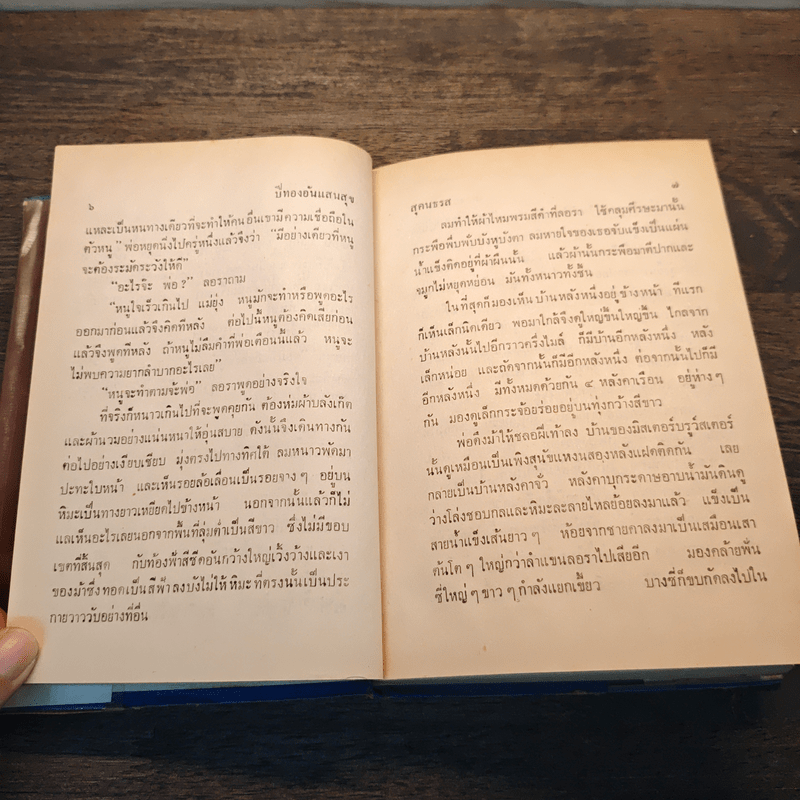 ๖
ปีทองอันแสนสุข
แหละเป็นหนทางเดียวที่จะทำให้คนอื่นเขามีความเชื่อถือใน
ตัวหนู" พ่อหยุดนึ่งไปครู่หนึ่งแล้วจึงว่า "มีอย่างเดียวที่หนู
จะต้องระมัดระวังให้ดี"
"อะไรจ๊ะ พ่อ?" ลอราถาม
"หนูใจเร็วเกินไป แม่ยุ่ง หนูมักจะทำหรือพูดอะไร
ออกมาก่อนแล้วจึงคิดทีหลัง ต่อไปนี้หนูต้องคิดเสียก่อน
แล้วจึงพูดทีหลัง ถ้าหนูไม่ลืมคำที่พ่อเตือนนี้แล้ว หนูจะ
ไม่พบความยากลำบากอะไรเลย"
"หนูจะทำตามจ้ะพ่อ" ลอราพูดอย่างจริงใจ
ที่จริงก็หนาวเกินไปที่จะพูดคุยกัน ต้องห่มผ้าบลังเก็ต
และผ้านวมอย่างแน่นหนาให้อุ่นสบาย ดังนั้นจึงเดินทางกัน
ต่อไปอย่างเงียบเชียบ มุ่งตรงไปทางทิศใต้ ลมหนาวพัดมา
ปะทะใบหน้า และเห็นรอยล้อเลื่อนเป็นรอยจาง ๆ อยู่บน
หิมะเป็นทางยาวเหยียดไปข้างหน้า นอกจากนั้นแล้วก็ไม่
แลเห็นอะไรเลยนอกจากพื้นที่ลุ่มต่ำเป็นสีขาว ซึ่งไม่มีขอบ
เขตที่สิ้นสุด กับท้องฟ้าสีซีดอันกว้างใหญ่เวิ้งว้างและเงา
ของม้าซึ่งทอดเป็นสีฟ้าลงบังไม่ให้หิมะที่ตรงนั้นเป็นประ
กายวาววับอย่างที่อื่น
สุคนธรส
๗
ลมทำให้ผ้าไหมพรมสีดำที่ลอรา ใช้คลุมศีรษะมานั้น
กระพือพึ่บพั่บบังหูบังตา ลมหายใจของเธอจับแข็งเป็นแผ่น
น้ำแข็งติดอยู่ที่ผ้าผืนนั้น แล้วผ้านั้นกระพือมาตีปากและ
จมูกไม่หยุดหย่อน มันทั้งหนาวทั้งชื้น
ในที่สุดก็มองเห็นบ้านหลังหนึ่งอยู่ข้างหน้า ทีแรก
ก็เห็นเล็กนิดเดียว พอมาใกล้จึงดูใหญ่ขึ้นใหญ่ขึ้น ไกลจาก
บ้านหลังนั้นไปอีกราวครึ่งไมล์ ก็มีบ้านอีกหลังหนึ่ง หลัง
เล็กหน่อย และถัดจากนั้นก็มีอีกหลังหนึ่ง ต่อจากนั้นไปก็มี
อีกหลังหนึ่ง มีทั้งหมดด้วยกัน ๔ หลังคาเรือน อยู่ห่าง ๆ
กัน มองดูเล็กกระจ้อยร่อยอยู่บนทุ่งกว้างสีขาว
พ่อดึงม้าให้ชลอฝีเท้าลง บ้านของมิสเตอร์บรูว์สเตอร์
นั้นดูเหมือนเป็นเพิงสนัขแหงนสองหลังแฝดติดกัน เลย
กลายเป็นบ้านหลังคาจั่ว หลังคาบุกระดาษอาบน้ำมันดินดู
ว่างโล่งชอบกลและหิมะละลายไหลย้อยลงมาแล้ว แข็งเป็น
สายน้ำแข็งเส้นยาว ๆ ห้อยจากชายคาลงมาเป็นเสมือนเสา
ต้นโต ๆ ใหญ่กว่าลำแขนลอราไปเสียอีก มองคล้ายฟัน
ซี่ใหญ่ ๆ ขาว ๆ กำลังแยกเขี้ยว บางซี่ก็ขบกัดลงไปใน